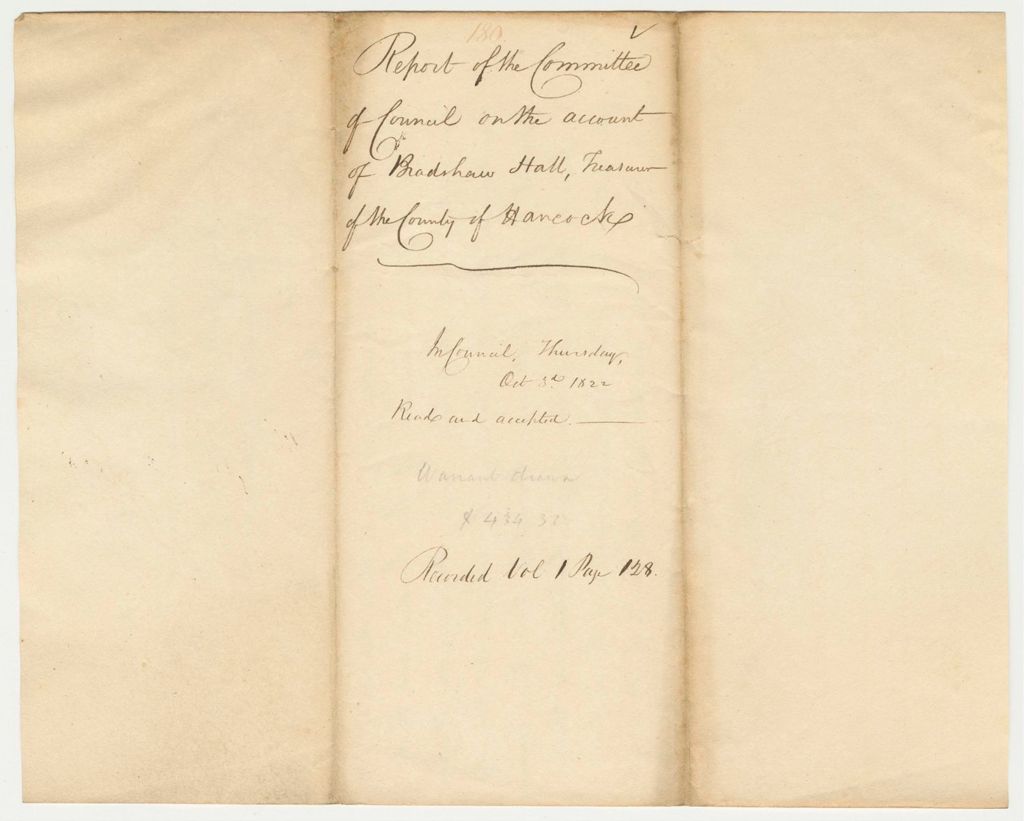 180
Report of the Committee
of Council on the account
of Bradshaw Hall, Treasurer
of the County of Hancock
In Council, Thursday,
Oct 3d. 1822
Read and accepted.
Warrant drawn
Recorded Vol 1 Page 128.